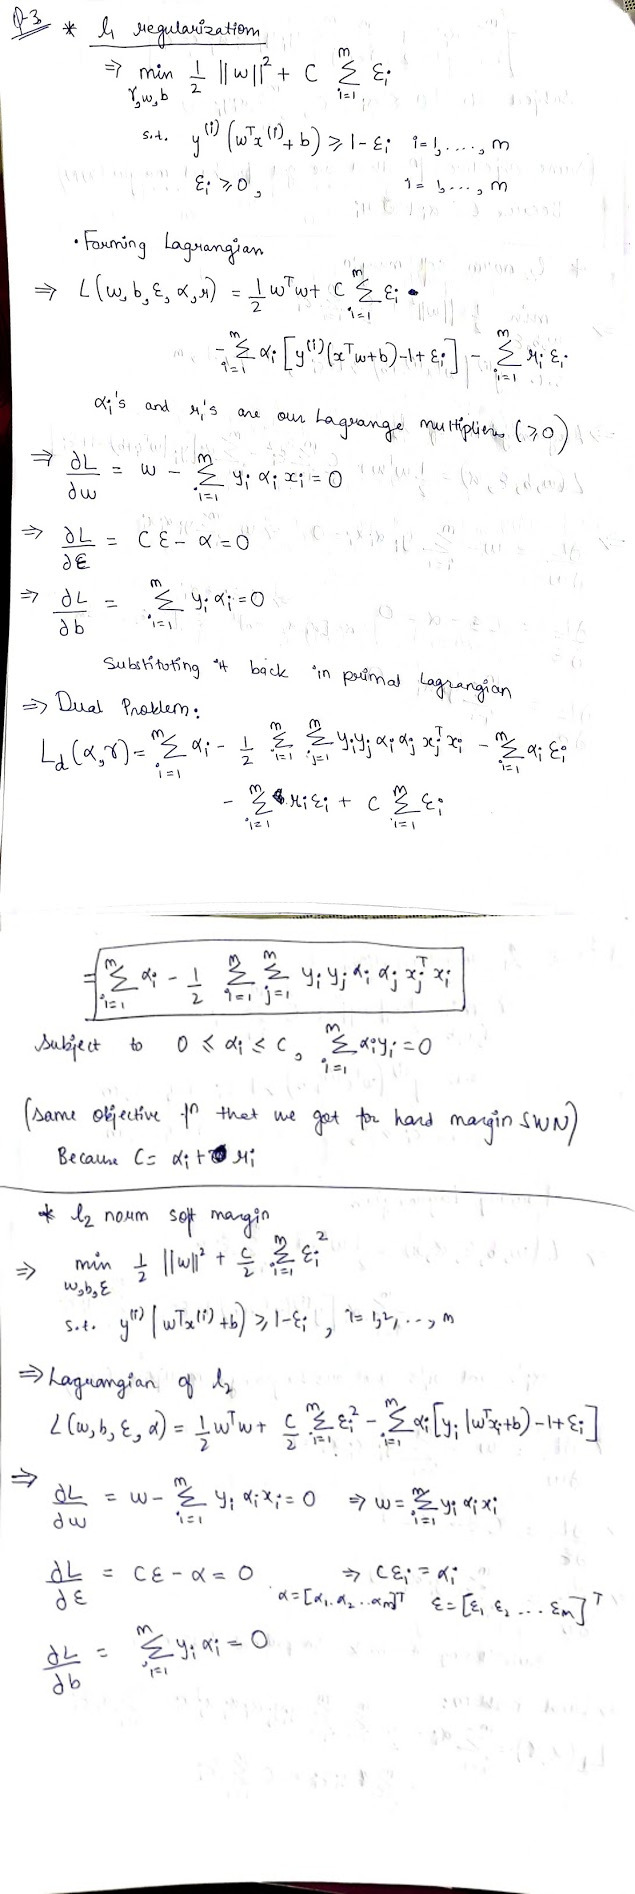 Q-3 * l₁ regularization
⇒ min_{γ,w,b} 1/2 ||w||² + C Σ_{i=1}^{m} ε_i
s.t. y^{(i)} (w^T x^{(i)} + b) ≥ 1-ε_i i=1,....,m
ε_i ≥ 0, i=1,...,m
• Forming Lagrangian
⇒ L(w,b,ε,α,r) = 1/2 w^T w + C Σ_{i=1}^{m} ε_i
- Σ_{i=1}^{m} α_i [y^{(i)}(x^T w+b)-1+ε_i] - Σ_{i=1}^{m} r_i ε_i
α_i's and r_i's are our Lagrange multipliers (≥0)
⇒ ∂L/∂w = w - Σ_{i=1}^{m} y_i α_i x_i = 0
⇒ ∂L/∂ε = Cε - α = 0
⇒ ∂L/∂b = Σ_{i=1}^{m} y_i α_i = 0
Substituting it back in primal Lagrangian
⇒ Dual Problem:
L_d(α,r) = Σ_{i=1}^{m} α_i - 1/2 Σ_{i=1}^{m} Σ_{j=1}^{m} y_i y_j α_i α_j x_j^T x_i - Σ_{i=1}^{m} α_i ε_i
- Σ_{i=1}^{m} r_i ε_i + C Σ_{i=1}^{m} ε_i
= Σ_{i=1}^{m} α_i - 1/2 Σ_{i=1}^{m} Σ_{j=1}^{m} y_i y_j α_i α_j x_j^T x_i
subject to 0 ≤ α_i ≤ C, Σ_{i=1}^{m} α_i y_i = 0
(same objective fn that we got for hard margin SWN)
Because C = α_i + r_i
* l₂ norm soft margin
⇒ min_{w,b,ε} 1/2 ||w||² + C/2 Σ_{i=1}^{m} ε_i²
s.t. y^{(i)} (w^T x^{(i)} + b) ≥ 1-ε_i, i=1,2,...,m
⇒ Lagrangian of l₂
L(w,b,ε,α) = 1/2 w^T w + C/2 Σ_{i=1}^{m} ε_i² - Σ_{i=1}^{m} α_i [y_i (w^T x_i + b) - 1 + ε_i]
⇒ ∂L/∂w = w - Σ_{i=1}^{m} y_i α_i x_i = 0 ⇒ w = Σ_{i=1}^{m} y_i α_i x_i
∂L/∂ε = Cε - α = 0 ⇒ Cε_i = α_i
α=[α₁ α₂ .. α_m]^T ε=[ε₁ ε₂ ... ε_m]^T
∂L/∂b = Σ_{i=1}^{m} y_i α_i = 0